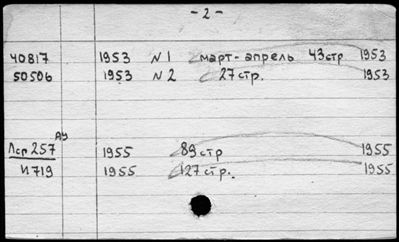 - 2 -
40817 1953 N1 март-апрель 43стр 1953
50506 1953 N2 27стр. 1953
АУ
Лср257 1955 89стр 1955
И719 1955 127стр. 1955